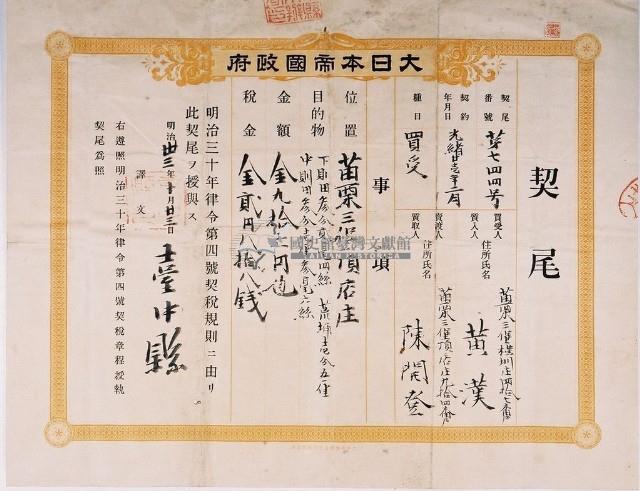 大日本帝國政府
契尾
契尾番號
第七四四号
契約年月日
光緒廿壱年十二月
種目
買受
買受人
質入人
住所氏名
黃漢
賣渡人
質取人
住所氏名
苗栗三堡頂店庄九拾四番戶
陳開登
事項
位置
苗栗三堡頂店庄
目的物
金額
金九拾六円也
稅金
金貳円八拾八錢
明治三十年律令第四號契稅規則ニ由リ
此契尾ヲ授與ス
明治卅三年十月廿三日
臺中縣
譯文
右遵照明治三十年律令第四號契稅章程授執
契尾爲照
國史館臺灣文獻館
TAIWAN HISTORICA